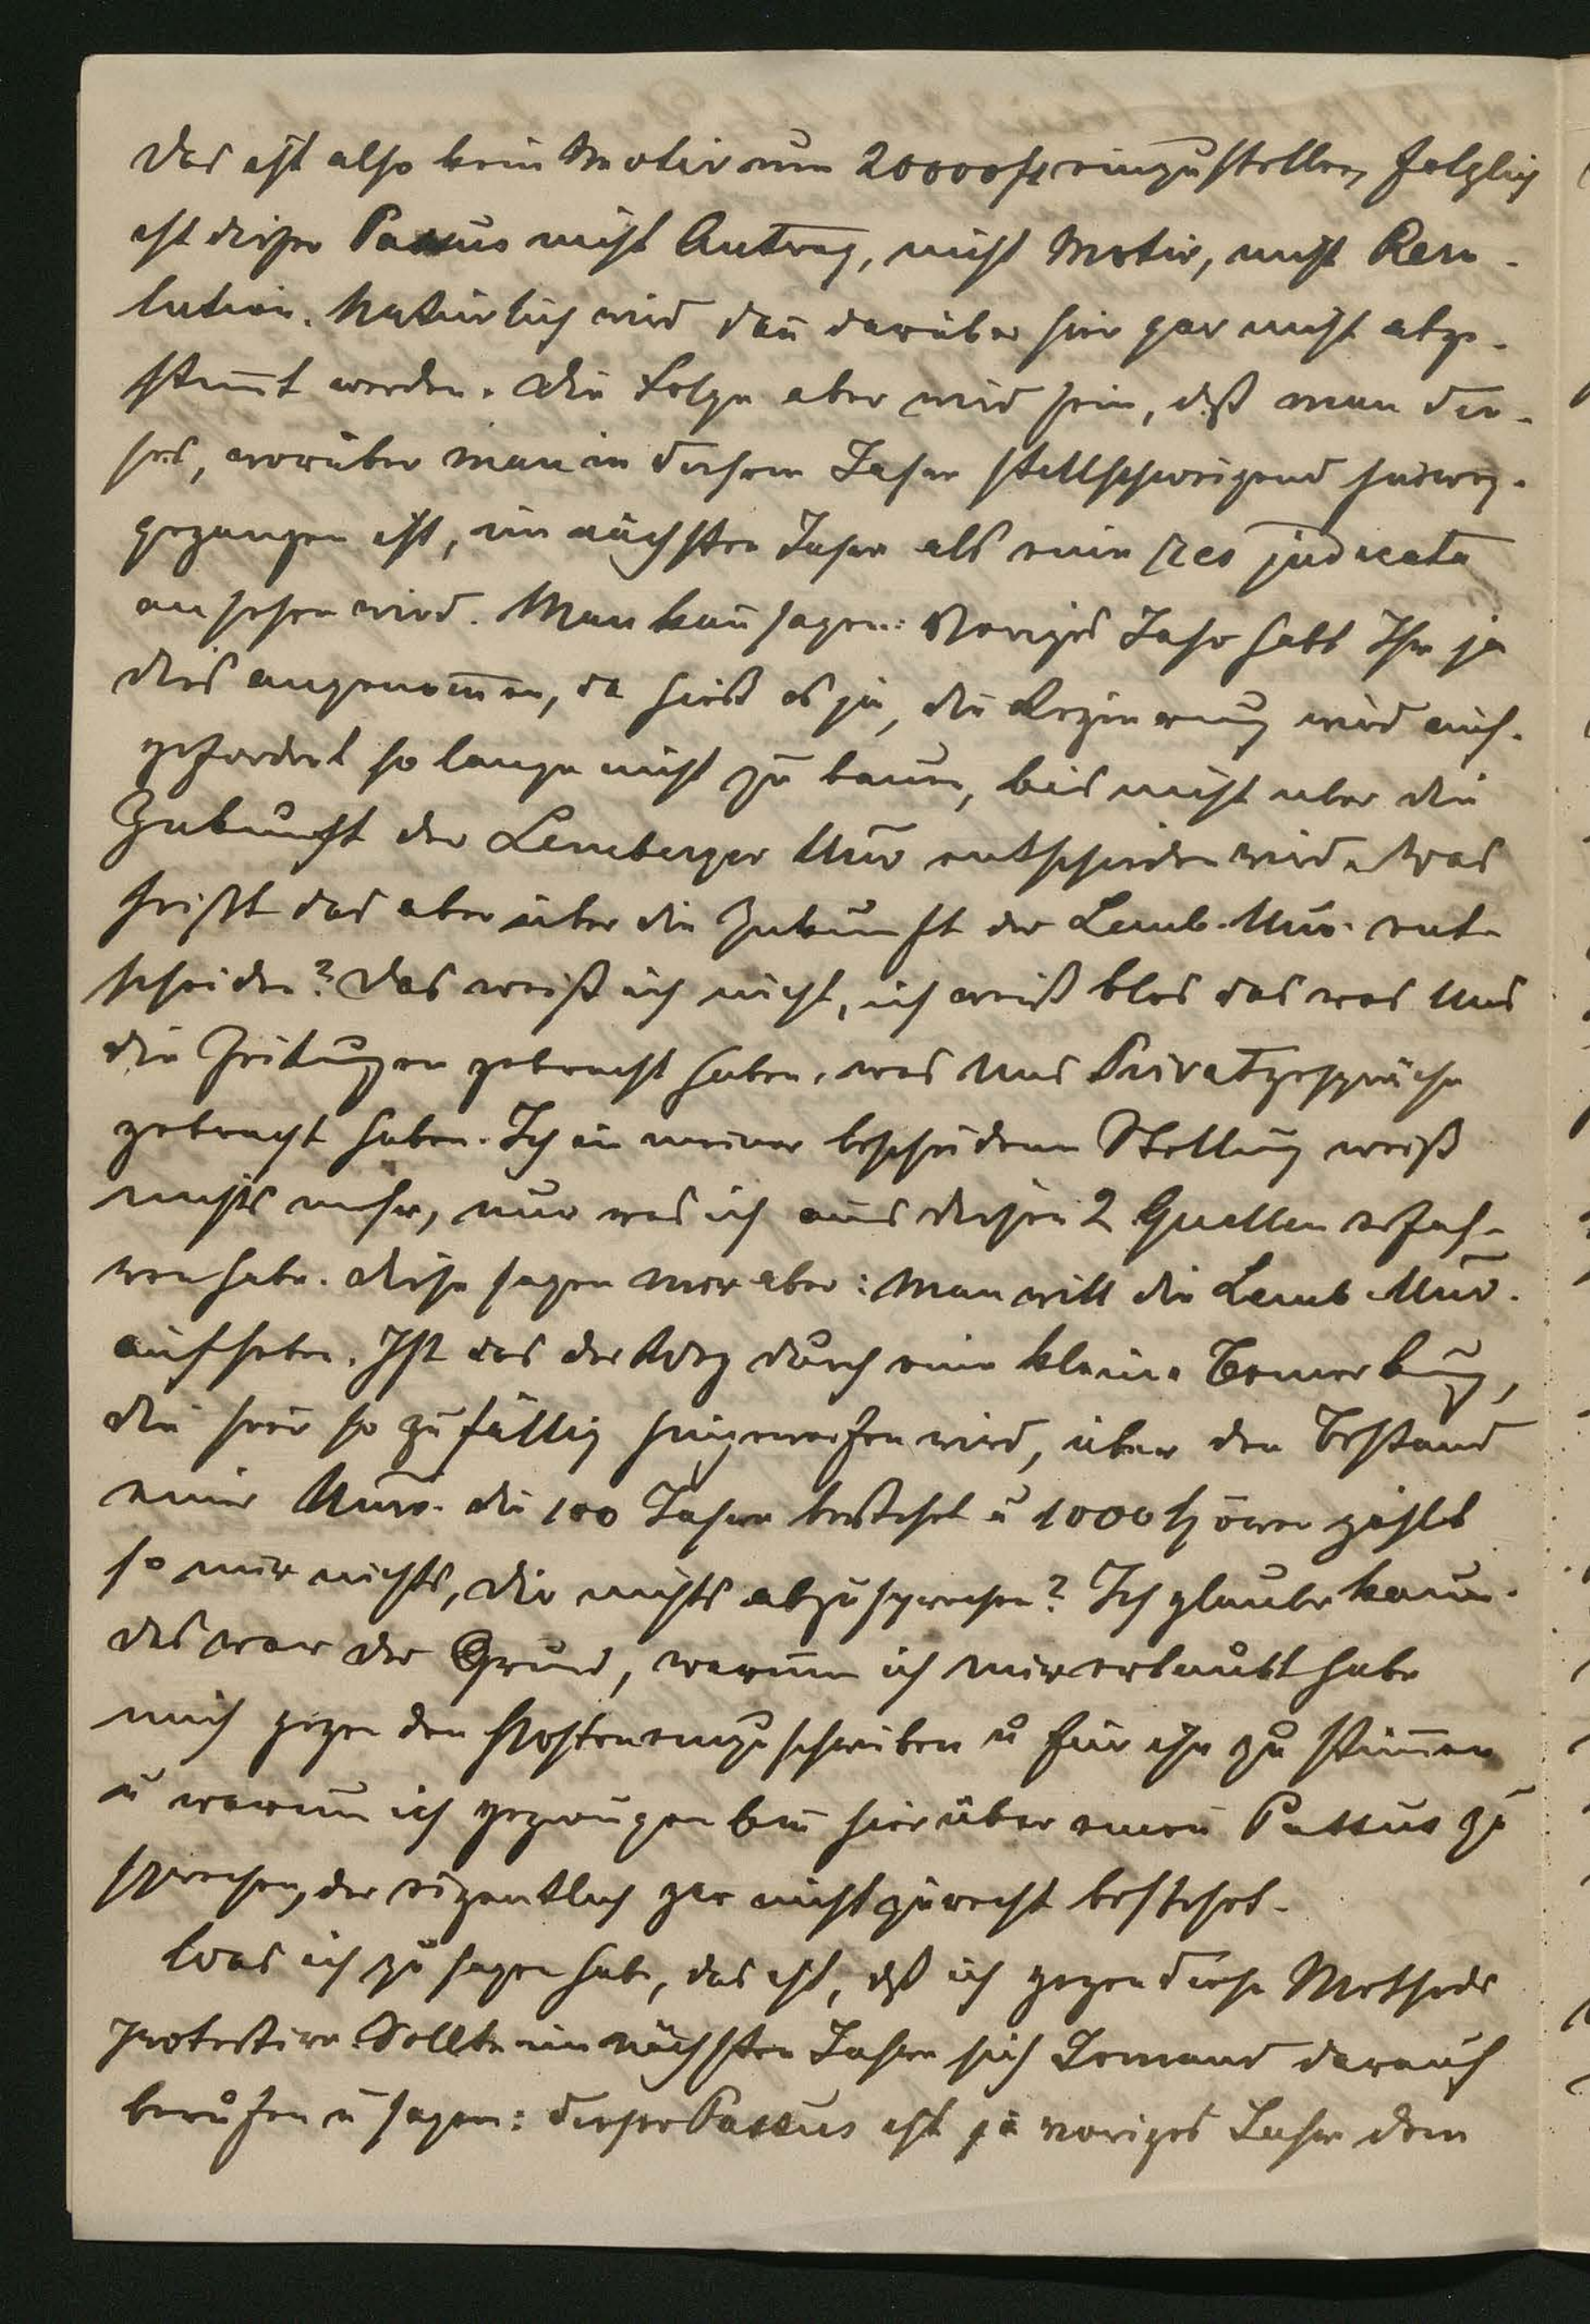 Das ist also kein Motiv um 20000 fl einzustellen, folglich
ist dieser Passus nicht Antrag, nicht Motiv, nicht Reso-
lution. Natürlich wird dañ darüber hier gar nicht abge-
stim̄t werden. Die Folge aber wird sein, daß man die-
ses, worüber man in diesem Jahre stillschweigend hinweg-
gegangen ist, im nächsten Jahre als eine res judicata
ansehen wird. Man kañ sagen: Voriges Jahr habt Ihr ja
dies angenom̄en, da hieß es ja, die Regierung wird auf-
gefordert so lange nicht zu bauen, bis nicht über die
Zukunft der Lemberger Univ entschieden wird. Was
heißt das aber über die Zukunft der Lemb. Univ. ent-
scheiden? Das weiß ich nicht, ich weiß blos das was uns
die Zeitungen gebracht haben, was uns Privatgespräche
gebracht haben. Ich in meiner bescheidenen Stellung weiß
nichts mehr, nur was ich aus diesen 2 Quellen erfah-
ren habe. Diese sagen mir aber: man will die Lemb. Univ.
aufheben. Ist das der Weg durch eine kleine Bemerkung,
die hier so zufällig hingeworfen wird, über den Bestand
einer Univ. die 100 Jahre besteht u 1000 Hörer zählt
so mir nichts, dir nichts abzusprechen? Ich glaube kaum.
Das war der Grund, warum ich mir erlaubt habe
mich gegen den Posten einzuschreiben u für ihn zu stim̄en
u warum ich gezwungen bin hier über einen Passus zu
sprechen, der eigentlich gar nicht zurecht besteht.
Was ich zu sagen habe, das ist, dß ich gegen diese Methode
protestire. Sollte im nächsten Jahre sich Jemand darauf
berufen u sagen: dieser Passus ist ja voriges Jahr dem